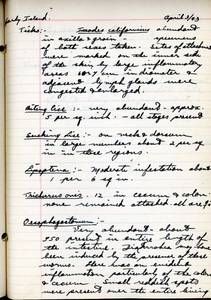 Hardy Island. April 3/43
Ticks:- Ixodes californicus abundant
in axilla & groin - specimens
of both sexes taken. Sites of attachment
were marked on the inner side
of the skin by large inflammatory
areas in diameter &
adjacent lymph glands were
congested & enlarged.
Biting lice :- very abundant - approx.
5 per sq. inch. - all stages present
Sucking lice :- on neck & dorsum
in large numbers about 2 per sq
in in these regions.
Lipoptena :- Moderate infestation about
1 per 2 sq in.
Trichuris ovis : 12 in caecum & colon
none remained attached all are
Oesophagostomum :-
Very abundant - about
350 present in entire length of
the intestine. Diarrhea may have
been induced by the presence of these
worms. There was marked
inflammation particularly of the colon
& cecum. Small reddish spots
were present over the entire lining